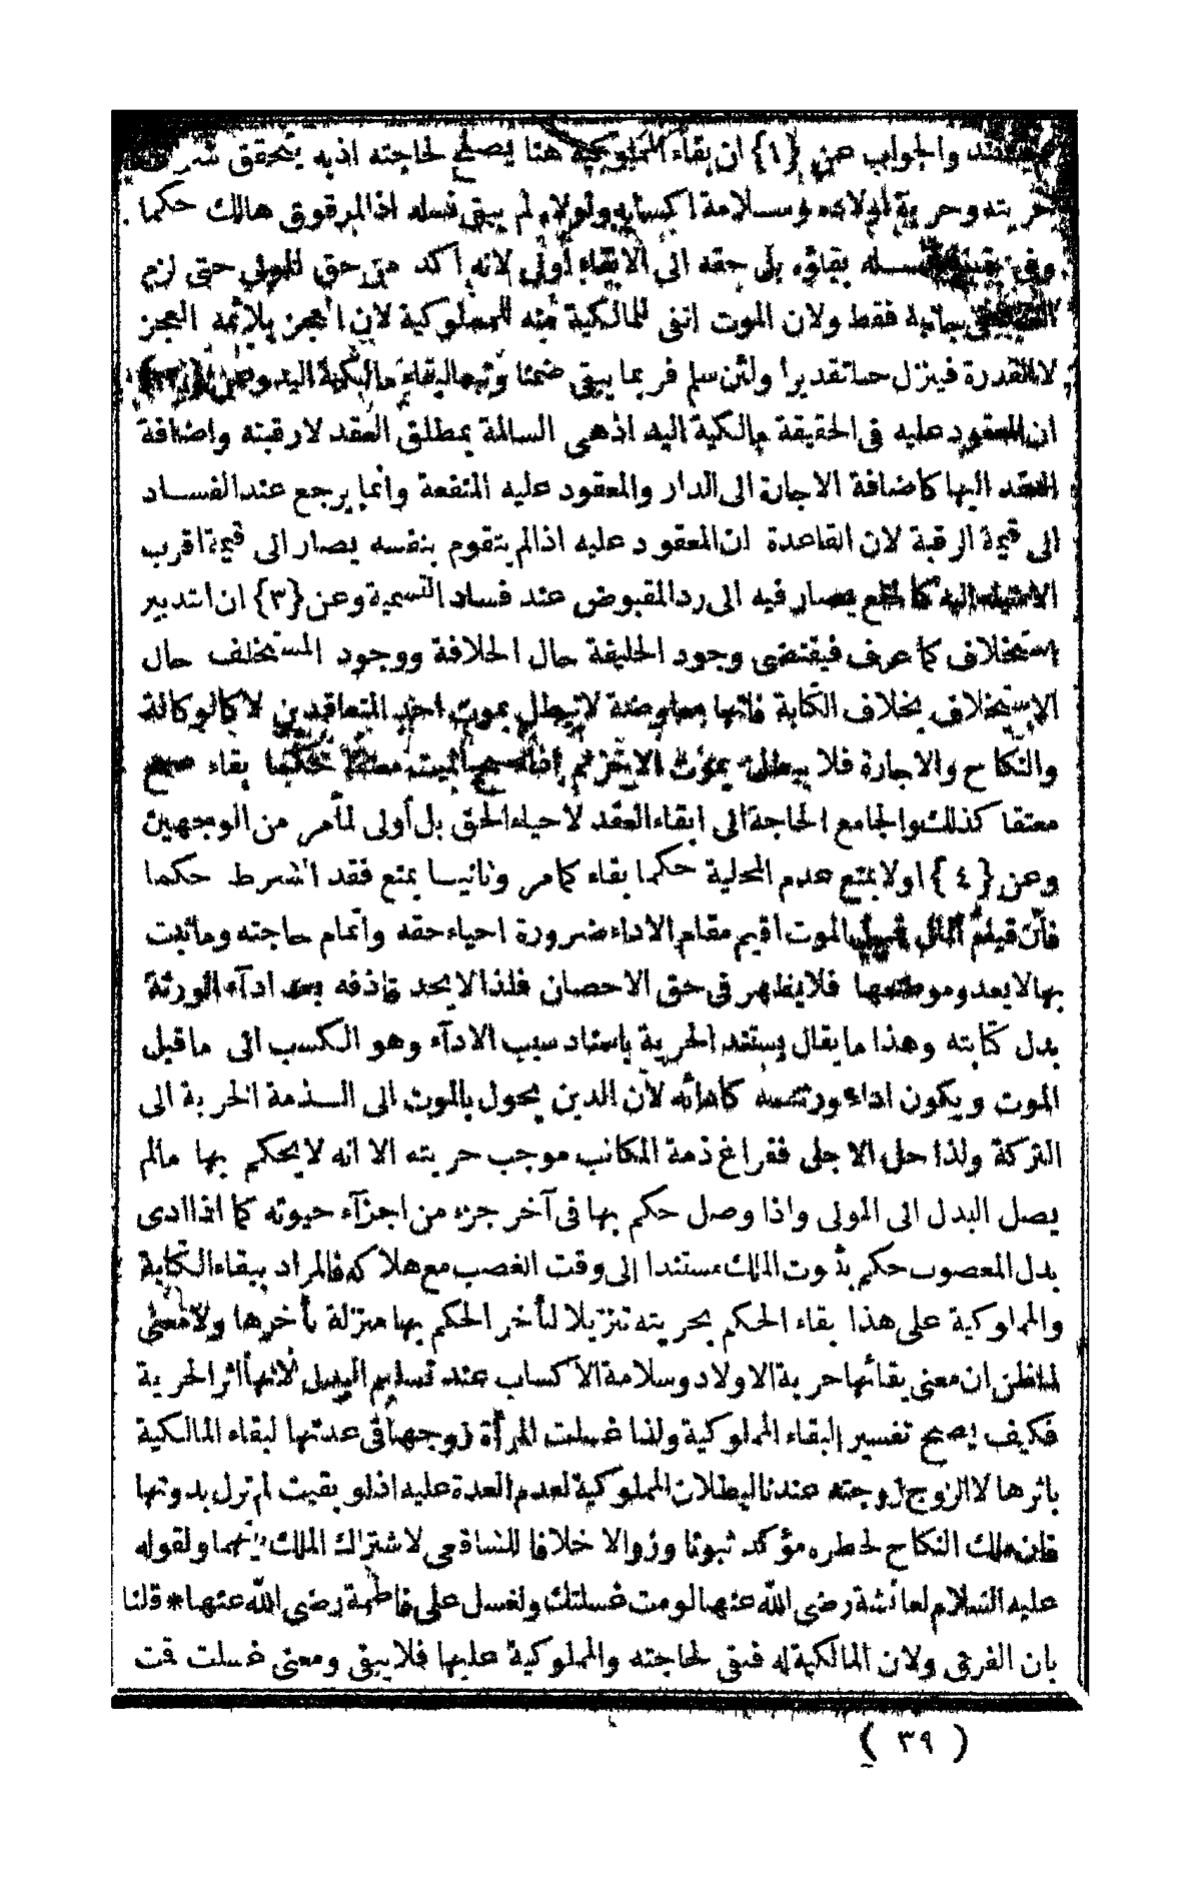 والجواب عن {١} ان بقاء المملوكية هنا يصلح لحاجته اذبه يتحقق شرف
حريته وحرية اولاده وسلامة اكسابه ولولاه لم يبق فسله اذ المرقوق هالك حكما
بقاؤه بل حقه الى الابقاء أولى لانه آكد من حق المولى حتى لزم
فقط ولان الموت انفى للمالكية منه للمملوكية لان العجز يلائمه العجز
لا القدرة فينزل حيا تقديرا ولئن سلم فربما يبقى ضمنا وتبعا لبقاء مالكية اليد وعن
ان المعقود عليه فى الحقيقة مالكية اليد اذهى السالمة بمطلق العقد لا رقبته واضافة
العقد اليها كاضافة الاجارة الى الدار والمعقود عليه المنفعة وانما يرجع عند الفساد
الى قيمة الرقبة لان القاعدة ان المعقود عليه اذالم يتقوم بنفسه يصار الى قيمة اقرب
الاشياء اليه يصار فيه الى رد المقبوض عند فساد التسمية وعن {٣} ان التدبير
استخلاف كما عرف فيقتضى وجود الخليفة حال الخلافة ووجود المستخلف حال
الاستخلاف بخلاف الكتابة فانها معاوضة لا تبطل بموت احد المتعاقدين لا كالوكالة
والنكاح والاجارة فلا يبطل بموت الآخر ثم حكما بقاء
معتقا كذلك والجامع الحاجة الى ابقاء العقد لاحياء الحق بل أولى لمأمر من الوجهين
وعن {٤} اولا بمنع عدم المحلية حكما بقاء كمامر وثانيا بمنع فقد الشرط حكما
فان قيام المال قبيل الموت اقيم مقام الاداء ضرورة احياء حقه واتمام حاجته وماثبت
بها لا يعدو موضعها فلا يظهر فى حق الاحصان فلذا لا يحد قاذفه بعد ادآء الورثة
بدل كتابته وهذا ما يقال يستند الحرية باستناد سبب الادآء وهو الكسب الى ماقبل
الموت ويكون اداء ورثته كادائه لان الدين يحول بالموت الى الــذمة الخربة الى
التركة ولذا حل الاجل ففراغ ذمة المكاتب موجب حريته الا انه لا يحكم بها مالم
يصل البدل الى المولى واذا وصل حكم بها فى آخر جزء من اجزآء حيوته كما اذا ادى
بدل المغصوب حكم بثبوت الملك مستندا الى وقت الغصب مع هلاكه فالمراد ببقاء الكتابة
والمملوكية على هذا بقاء الحكم بحريته تنزيلا لتأخر الحكم بها منزلة تأخرها ولا معنى
لما ظن ان معنى بقائها حرية الاولاد وسلامة الاكساب عند تسليم البدل لانها اثر الحرية
فكيف يصح تفسير البقاء المملوكية ولذا غسلت المرأة زوجها فى عدتها لبقاء المالكية
باثرها لا الزوج زوجته عندنا لبطلان المملوكية لعدم العدة عليه اذلو بقيت لم تزل بدونها
فان ملك النكاح لخطره مؤكد ثبوتا وزوالا خلافا للشافعى لاشتراك الملك بينهما ولقوله
عليه السلام لعائشة رضى الله عنها لومت غسلتك ولغسل على فاطمة رضى الله عنها * قلنا
بان الفرق ولان المالكية له فتبقى لحاجته والمملوكية عليها فلا يبقى ومعنى غسلت قت
( ٣٩ )